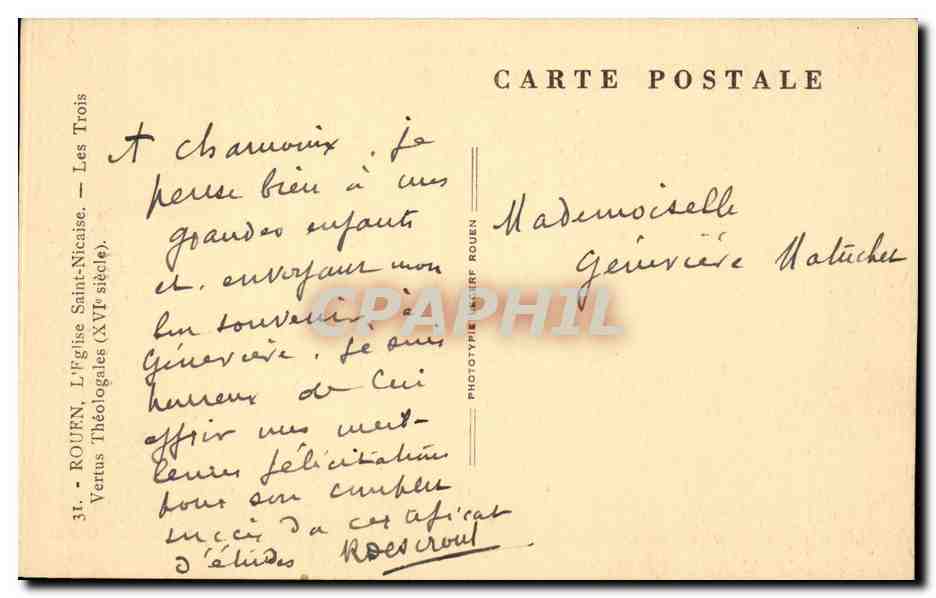 CARTE POSTALE
31. - ROUEN, L'Eglise Saint-Nicaise. — Les Trois
Vertus Théologales (XVIe siècle).
A Chamonix. je
pense bien à mes
grandes enfants
et. envoyant mon
bon souvenir à
Géneviève. je suis
heureux de lui
offrir mes meil-
leures félicitations
pour son complet
succès du certificat
d'études
PHOTOTYPIE LECERF ROUEN
Mademoiselle
Géneviève
CPAPHIL